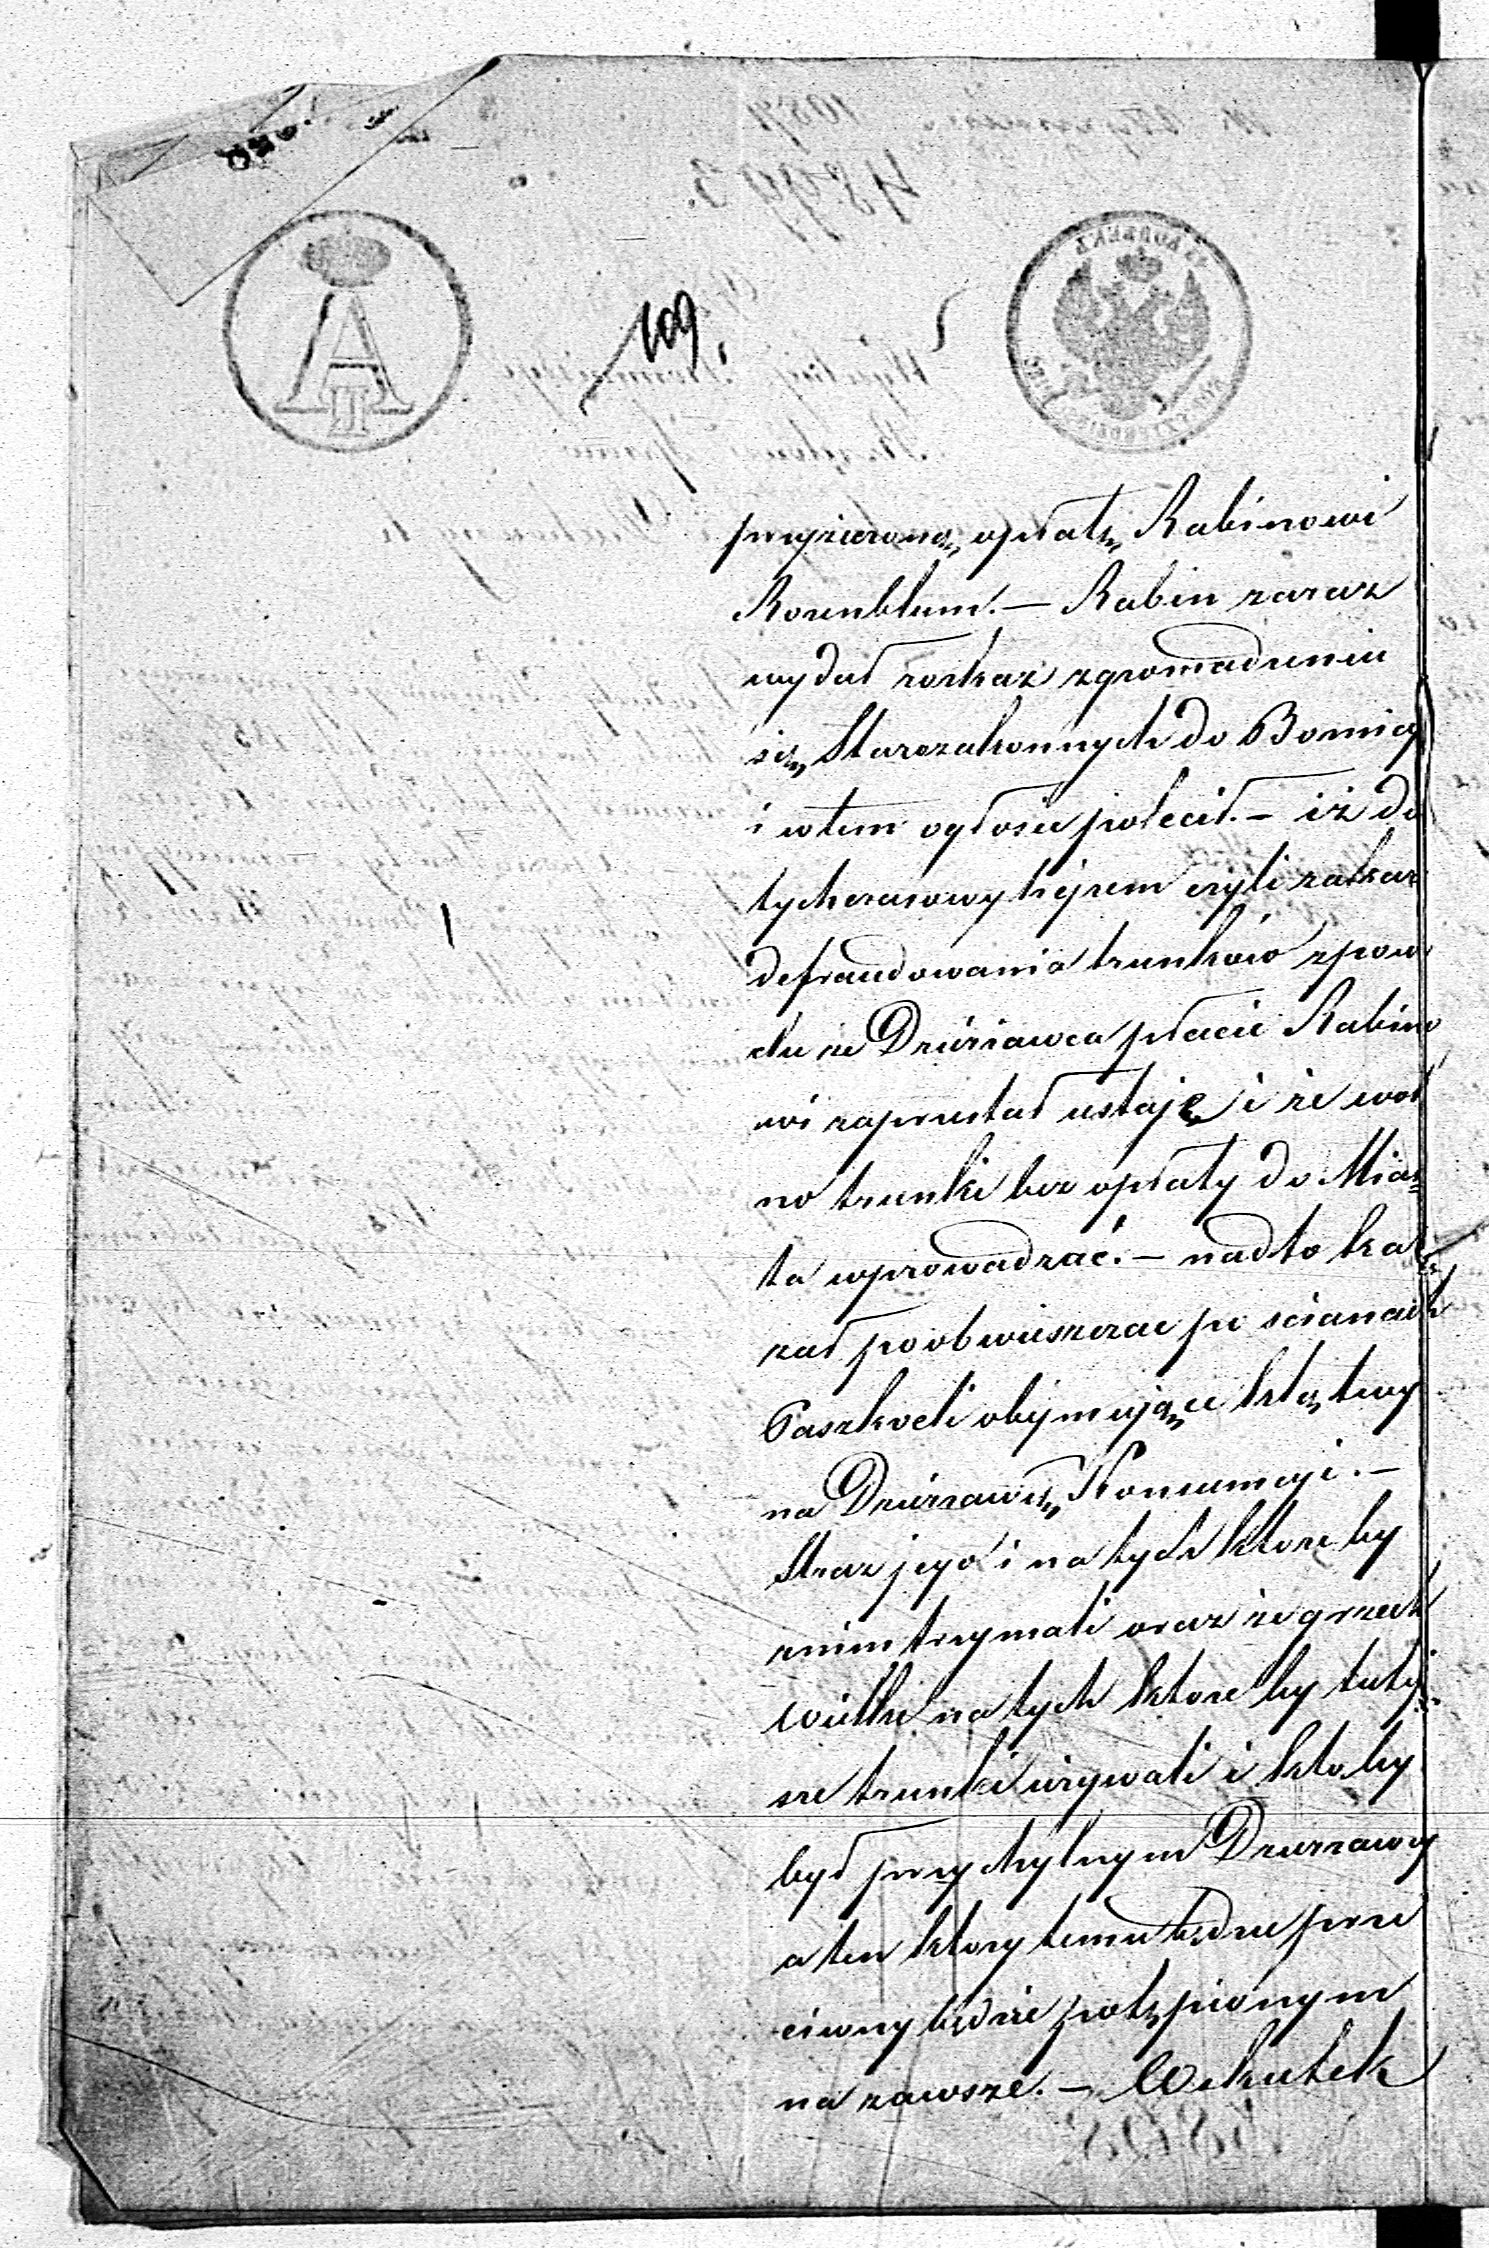 109.
przyrzeczoną opłatę Rabinowi
Rosenblum. — Rabin zaraz
wydał roskaz zgromadzenia
się Starozakonnych do Bożnicy
i w tem ogłosić polecił. — iż do
tychczasowy hejrem czyli zakaz
defraudowania trunków z powo
du że Dzierżawca płacić Rabino
wi zaprzestał ustaję i że wol
no trunki bez opłaty do Mias=
ta wprowadzać. — nadto ka
zał poobwieszczać po ścianach
Paszkveli obejmujące klątwy
na Dzierżawcę Konsumcji. —
Straz jego i na tych ktore by
z nim trzymali oraz że grzech
wielki na tych ktore by tutej=
sze trunki używali i kto by
był przychylnym Dzierzawcy
a ten ktory temu będzie prze
ciwny będzie potępionym
na zawsze. — W skutek